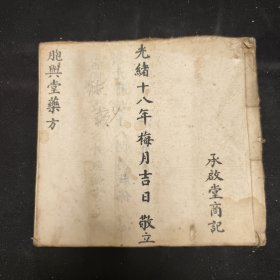 承啟堂商記
光緒十八年梅月吉日敬立
胞與堂藥方